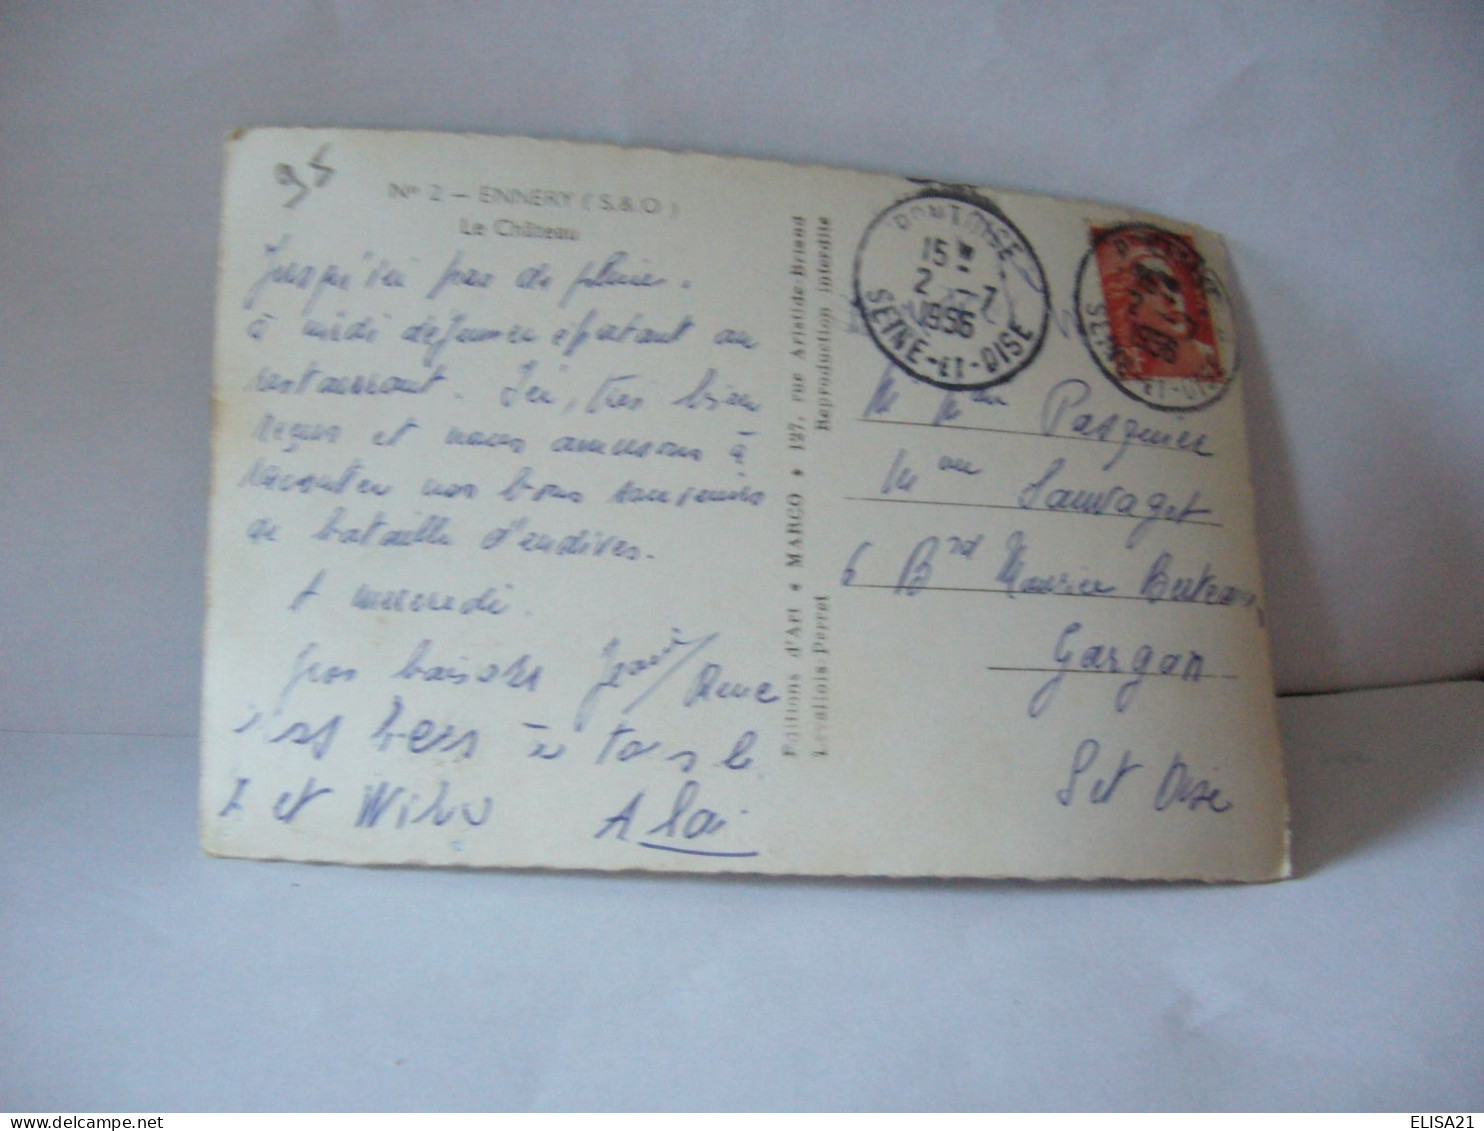 95
N° 2 — ENNERY ( S. & O )
Le Château
Jusqu'ici pas de pluie.
à midi déjeuner épatant au
restaurant. Ici, très bien
reçus et nous amusons à
raconter nos bons souvenirs
de bataille d'endives.
A mercredi.
gros baisers
bess à tous
et
Alai
Editions d'Art « MARCO » 127, rue Aristide-Briand
Levallois-Perret Reproduction interdite
PONTOISE
15 H
2 - 7
1956
SEINE-ET-OISE
PONTOISE
SEINE-ET-OISE
M Mme Pasquier
Mme Sauvaget
6 Brd Maurice Berteaux
Gargan
S et Oise
ELISA21